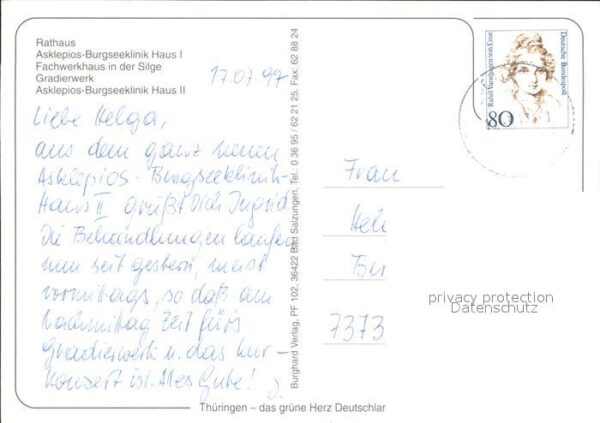 Rathaus
Asklepios-Burgseeklinik Haus I
Fachwerkhaus in der Silge
Gradierwerk
Asklepios-Burgseeklinik Haus II
17.07.97
Liebe Helga,
aus dem ganz neuen
Asklepios-Burgseeklinik-
Haus II grüßt Dich Ingrid.
Die Behandlungen laufen
nun seit gestern, meist
vormittags, so daß am
Nachmittag Zeit für's
Gradierwerk u. das Kur-
konzert ist. Alles Gute! J.
Burghard Verlag, PF 102, 36422 Bad Salzungen, Tel. 0 36 95 / 62 21 25, Fax: 62 88 24
Rahel Varnhagen von Ense
Deutsche Bundespost
80
Frau
Hel
7373
privacy protection
Datenschutz
Thüringen – das grüne Herz Deutschlar